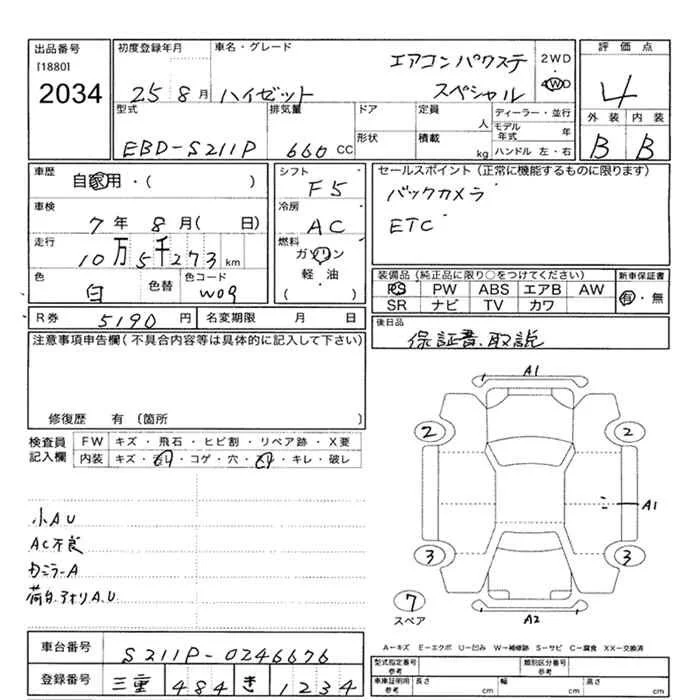 出品番号 初度登録年月 車名・グレード 評価点
[1880]
2034
25 8月 ハイゼット エアコンパワステ スペシャル 2WD・4WD 4
型式 排気量 ドア 定員 ディーラー・並行 外装 内装
人 モデル年式 年
EBD-S211P 660 CC 形状 積載 kg ハンドル 左・右 B B
車歴 自家用・( ) シフト F5 セールスポイント(正常に機能するものに限ります)
バックカメラ
車検 7年 8月( 日) 冷房 AC ETC
走行 10万5千273 km 燃料 ガソリン
軽・油
( )
色 白 色替 色コード W09
装備品(純正品に限り○をつけてください) 新車保証書
PS PW ABS エアB AW 有・無
SR ナビ TV カワ
R券 5190 円 名変期限 月 日 後日品
保証書、取説
注意事項申告欄(不具合内容等は具体的に記入して下さい)
修復歴 有 〔箇所 〕
検査員記入欄 FW キズ・飛石・ヒビ割・リペア跡・X要
内装 キズ・ ・コゲ・穴・ ・キレ・破レ
小AU
AC不良
A
荷台.アオリA.U.
A1
2 2
A1
3 3
7
スペア
A2
A-キズ E-エクボ U-凹み W-補修跡 S-サビ C-腐食 XX-交換済
車台番号 S211P-0246676
型式指定番号 参考 類別区分番号 参考
登録番号 三重 484 き 1234
車車証明用 参考 長さ cm 幅 cm 高さ cm